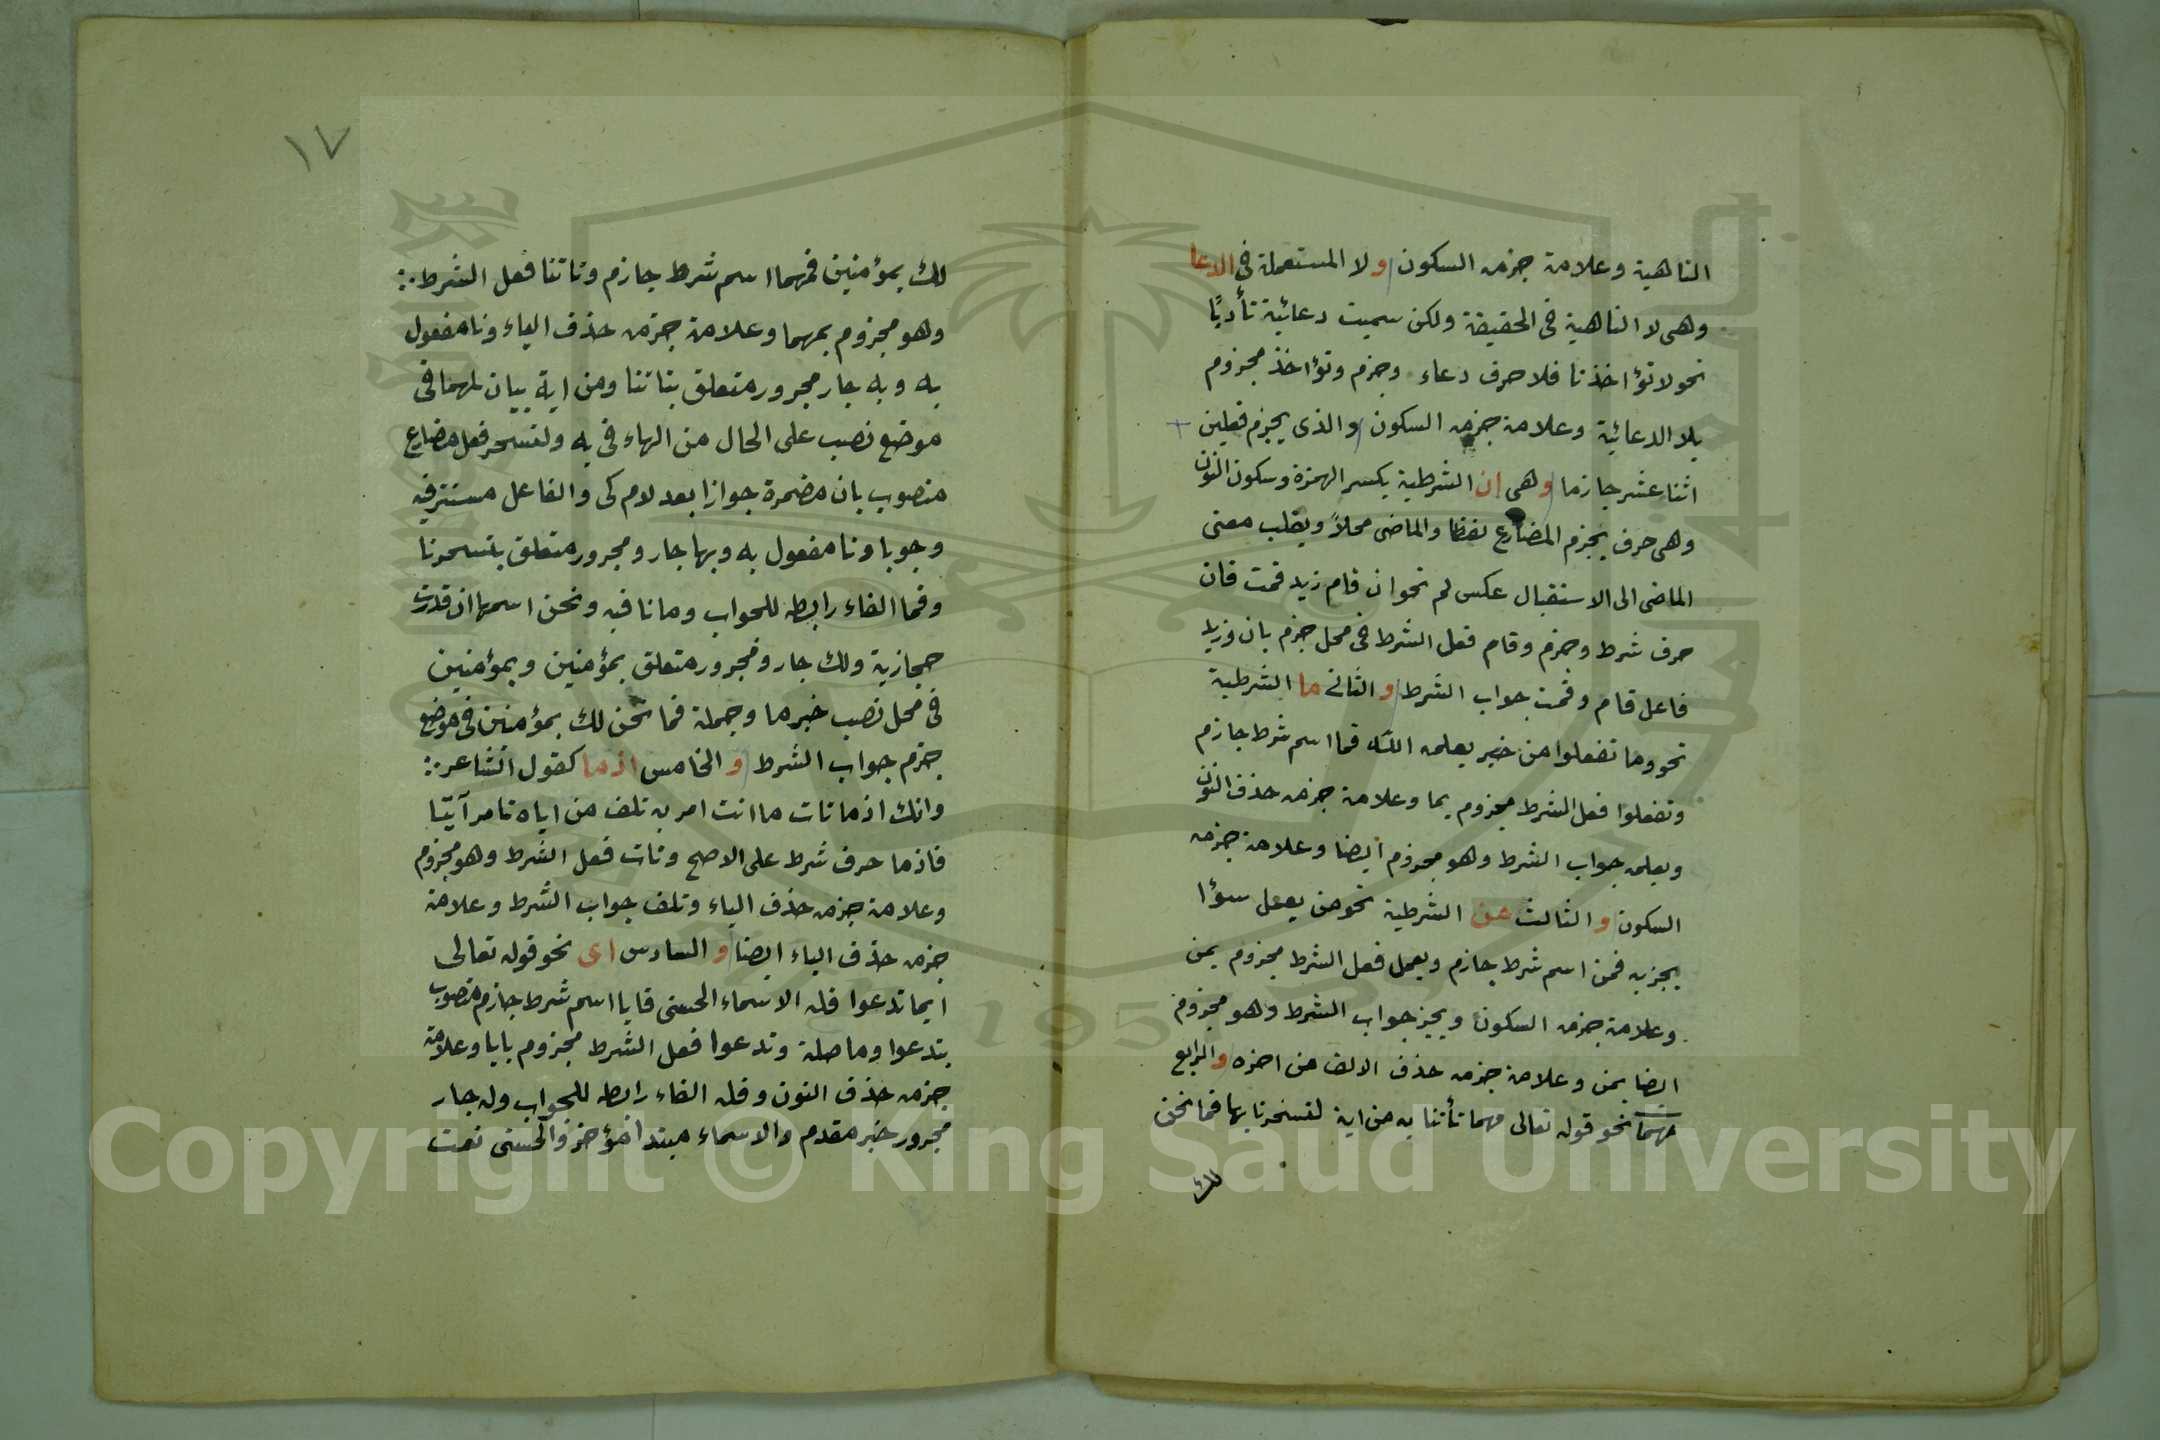 الناهية وعلامة جزمه السكون ولا المستعملة في الدعا
وهى لا الناهية فى الحقيقة ولكن سميت دعائية تأدبًا
نحو لا تؤاخذنا فلا حرف دعاء وجزم وتؤاخذ مجزوم
بلا الدعائية وعلامة جزمه السكون والذى يجزم فعلين
اثنا عشر جازما وهى إن الشرطية بكسر الهمزة وسكون النون
وهى حرف يجزم المضارع لفظا والماضى محلاً ويقلب معنى
الماضى الى الاستقبال عكس لم نحو ان قام زيد قمت فان
حرف شرط وجزم وقام فعل الشرط فى محل جزم بان وزيد
فاعل قام وقمت جواب الشرط والثانى ما الشرطية
نحو وما تفعلوا من خير يعلمه الله فما اسم شرط جازم
وتفعلوا فعل الشرط مجزوم بما وعلامة جزمه حذف النون
ويعلمه جواب الشرط وهو مجزوم ايضا وعلامة جزمه
السكون والثالث من الشرطية نحو من يعمل سوٴا
يجز به فمن اسم شرط جازم ويعمل فعل الشرط مجزوم بمن
وعلامة جزمه السكون ويجز جواب الشرط وهو مجزوم
ايضا بمن وعلامة جزمه حذف الالف من اخره والرابع
مهما نحو قوله تعالى مهما تأتنا به من اية لتسحرنا بها فما نحن
لك
١٧
لك بمؤمنين فمهما اسم شرط جازم وتاتنا فعل الشرط
وهو مجزوم بمهما وعلامة جزمه حذف الياء ونا مفعول
به وبه جار مجرور متعلق بتاتنا ومن اية بيان لمهما فى
موضع نصب على الحال من الهاء فى به ولتسحر فعل مضارع
منصوب بان مضمرة جوازا بعد لام كى والفاعل مستتر فيه
وجوبا ونا مفعول به وبها جار ومجرور متعلق بتسحرنا
وفما الفاء رابطه للجواب وما نافيه ونحن اسمها ان قدرت
حجازية ولك جار ومجرور متعلق بمؤمنين وبمؤمنين
فى محل نصب خبر ما وجملة فما نحن لك بمؤمنين فى موضع
جزم جواب الشرط والخامس اذما كقول الشاعر
وانك اذما تات ما انت امر به تلف من اياه تامر آتيا
فاذما حرف شرط على الاصح وتات فعل الشرط وهو مجزوم
وعلامة جزمه حذف الياء وتلف جواب الشرط وعلامة
جزمه حذف الياء ايضا والسادس اى نحو قوله تعالى
ايما تدعوا فله الاسماء الحسنى فايا اسم شرط جازم منصوب
بتدعوا وما صلة وتدعوا فعل الشرط مجزوم بايا وعلامة
جزمه حذف النون وفله الفاء رابطه للجواب وله جار
مجرور خبر مقدم والاسماء مبتدا مؤخر والحسنى نعت
Copyright © King Saud University
195